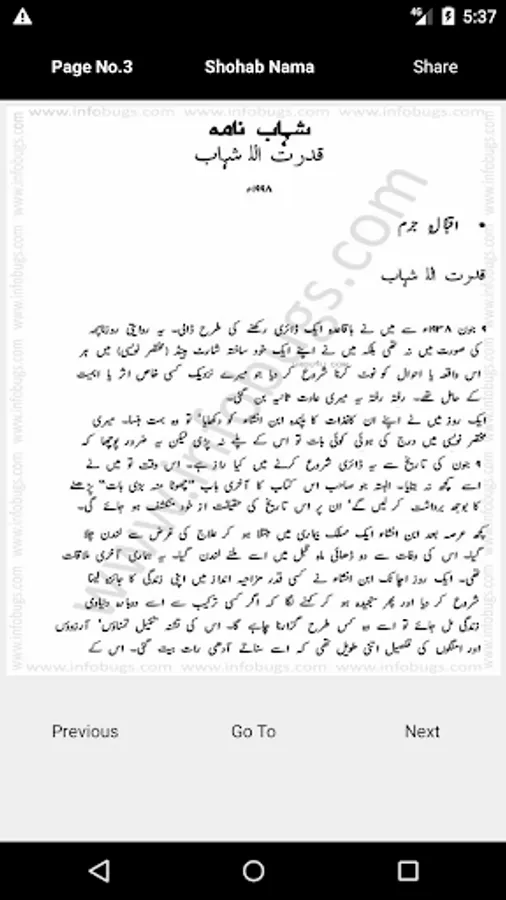 4G 5:37
Page No.3 Shohab Nama Share
www.infobugs.com www.infobugs.com www.infobugs.com
شہاب نامہ
قدرت اللہ شہاب
۱۹۹۸ء
• اقبالِ جرم
قدرت اللہ شہاب
۹ جون ۱۹۳۸ء سے میں نے باقاعدہ ایک ڈائری رکھنے کی طرح ڈالی۔ یہ روایتی روزنامچہ
کی صورت میں نہ تھی بلکہ میں نے اپنے ایک خود ساختہ شارٹ ہینڈ (مختصر نویسی) میں ہر
اس واقعہ یا احوال کو نوٹ کرنا شروع کر دیا جو میرے نزدیک کسی خاص اثر یا اہمیت
کے حامل تھے۔ رفتہ رفتہ یہ میری عادت ثانیہ بن گئی۔
ایک روز میں نے اپنے ان کاغذات کا پلندہ ابن انشاء کو دکھایا' تو وہ بہت ہنسا۔ میری
مختصر نویسی میں درج کی ہوئی کوئی بات تو اس کے پلے نہ پڑی لیکن یہ ضرور پوچھا کہ
۹ جون کی تاریخ سے یہ ڈائری شروع کرنے میں کیا راز ہے۔ اس وقت تو میں نے
اسے کچھ نہ بتایا۔ البتہ جو صاحب اس کتاب کا آخری باب "چھوٹا منہ بڑی بات" پڑھنے
کا بوجھ برداشت کر لیں گے' ان پر اس تاریخ کی حقیقت از خود منکشف ہو جائے گی۔
کچھ عرصہ بعد ابن انشاء ایک مہلک بیماری میں مبتلا ہو کر علاج کی غرض سے لندن چلا
گیا۔ اس کی وفات سے دو ڈھائی ماہ قبل میں اسے ملنے لندن گیا۔ یہ ہماری آخری ملاقات
تھی۔ ایک روز اچانک ابن انشاء نے کسی قدر مزاحیہ انداز میں اپنی زندگی کا جائزہ لینا
شروع کر دیا اور پھر سنجیدہ ہو کر کہنے لگا کہ اگر کسی ترکیب سے اسے دوبارہ دنیاوی
زندگی مل جائے تو اسے وہ کس طرح گزارنا چاہے گا۔ اس کی تشنہ تکمیل تمناؤں' آرزوؤں
اور امنگوں کی تفصیل اتنی طویل تھی کہ اسے سناتے آدھی رات بیت گئی۔ اس کے
www.infobugs.com www.infobugs.com www.infobugs.com
www.infobugs.com
Previous Go To Next